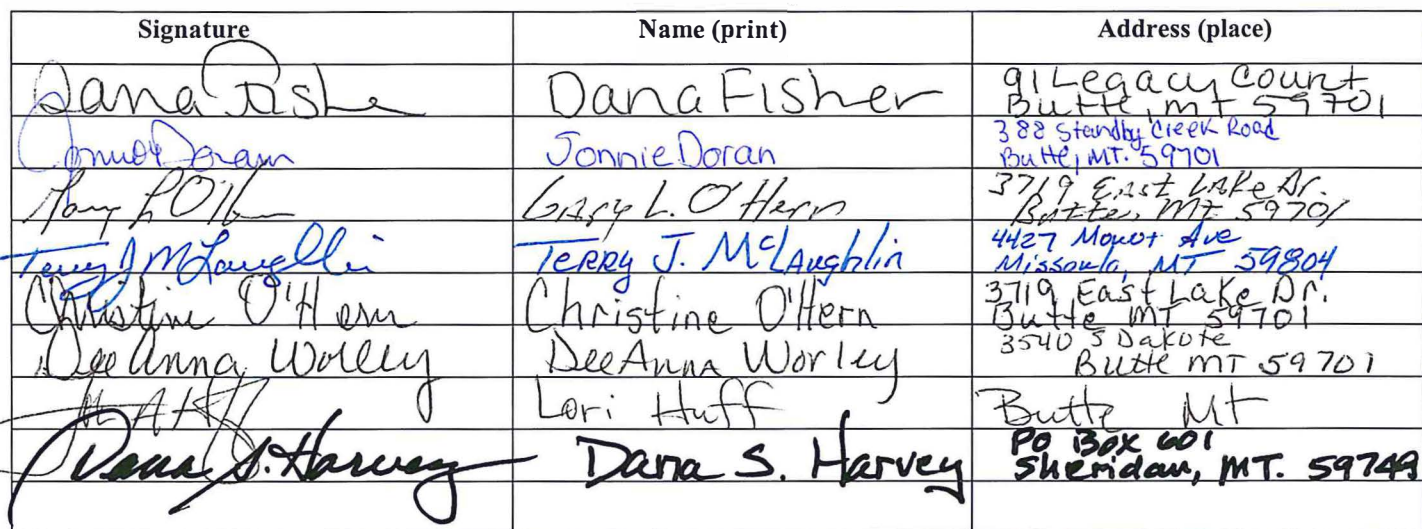 Signature Name (print) Address (place)
Dana Fishe Dana Fisher 91 Legacy Court
Butte, MT 59701
Jonnie Doran Jonnie Doran 388 Standby Creek Road
Butte, MT. 59701
Gary L O'Hern Gary L. O'Hern 3719 East Lake Dr.
Butte, MT 59701
Terry J McLaughlin Terry J. McLaughlin 4427 Mount Ave
Missoula, MT 59804
Christine O'Hern Christine O'Hern 3719 East Lake Dr.
Butte MT 59701
DeeAnna Worley DeeAnna Worley 3540 S Dakota
Butte MT 59701
Lori Huff Butte Mt
Dana S. Harvey Dana S. Harvey PO Box 601
Sheridan, MT. 59749